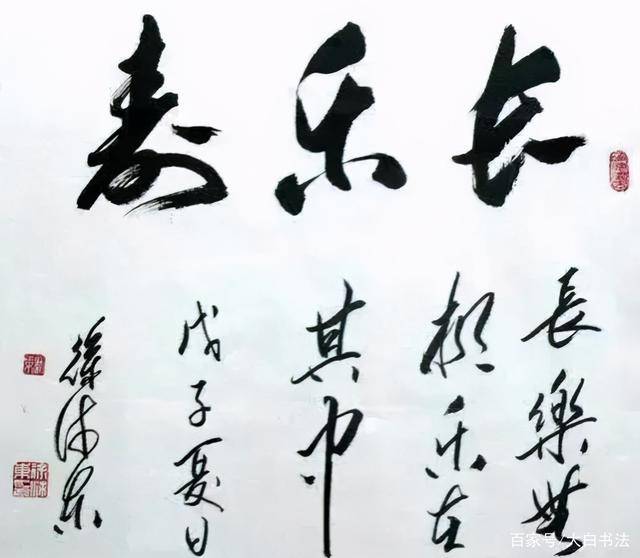 长乐寿
長樂無
极乐在
其中
戊子夏日
徐沛东
百家号/大白书法